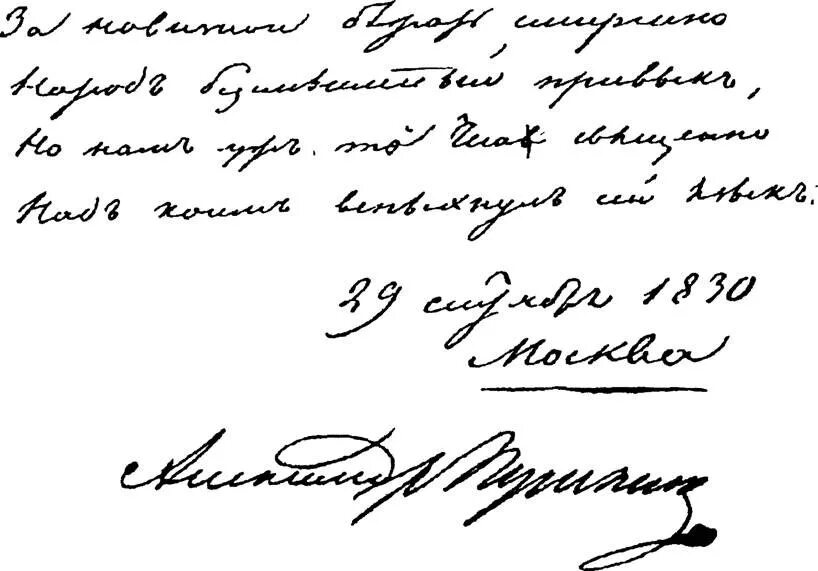 За новизной бѣжать смиренно
Народъ безсмысленный привыкъ,
Но намъ ужъ то чело священно
Надъ коимъ вспыхнулъ сей языкъ.
29 сентября 1830
Москва
Александръ Пушкинъ